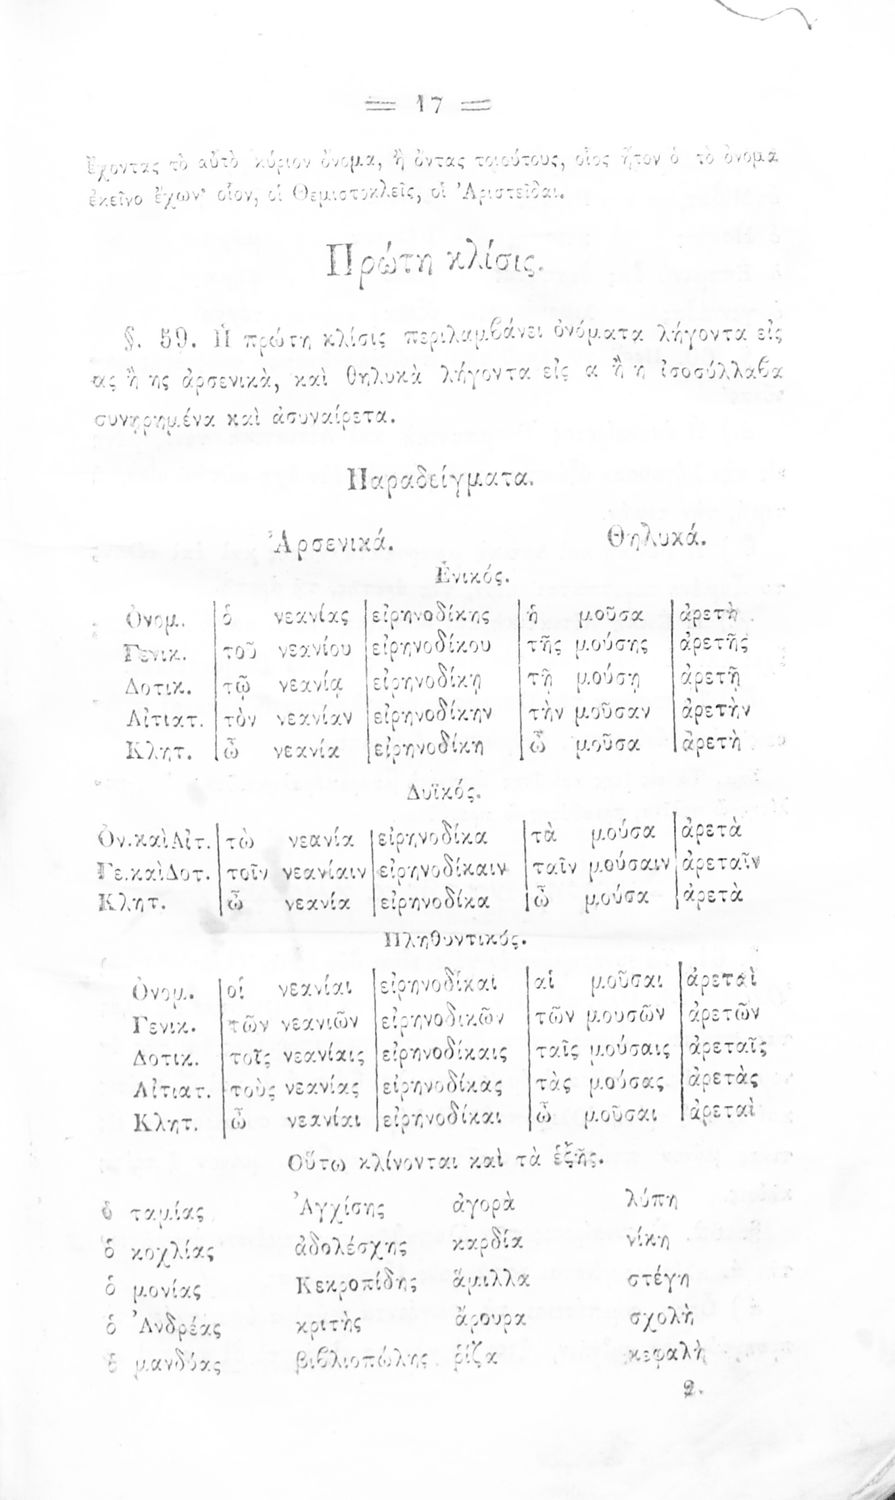 = 17 =
ἔχοντας τὸ αὐτὸ κύριον ὄνομα, ἢ ὄντας τοιούτους, οἷος ἦτον ὁ τὸ ὄνομα
ἐκεῖνο ἔχων· οἷον, οἱ Θεμιστοκλεῖς, οἱ Ἀριστεῖδαι.
Πρώτη κλίσις.
§. 59. Ἡ πρώτη κλίσις περιλαμβάνει ὀνόματα λήγοντα εἰς
ας ἢ ης ἀρσενικὰ, καὶ θηλυκὰ λήγοντα εἰς α ἢ η ἰσοσύλλαβα
συνῃρημένα καὶ ἀσυναίρετα.
Παραδείγματα.
Ἀρσενικά. Θηλυκά.
Ἑνικός.
Ὀνομ. ὁ νεανίας εἰρηνοδίκης ἡ μοῦσα ἀρετὴ
Γενικ. τοῦ νεανίου εἰρηνοδίκου τῆς μούσης ἀρετῆς
Δοτικ. τῷ νεανίᾳ εἰρηνοδίκῃ τῇ μούσῃ ἀρετῇ
Αἰτιατ. τὸν νεανίαν εἰρηνοδίκην τὴν μοῦσαν ἀρετὴν
Κλητ. ὦ νεανία εἰρηνοδίκη ὦ μοῦσα ἀρετὴ
Δυϊκός.
Ὀν.καὶ Αἰτ. τὼ νεανία εἰρηνοδίκα τὰ μούσα ἀρετὰ
Γε.καὶ Δοτ. τοῖν νεανίαιν εἰρηνοδίκαιν ταῖν μούσαιν ἀρεταῖν
Κλητ. ὦ νεανία εἰρηνοδίκα ὦ μούσα ἀρετὰ
Πληθυντικός.
Ὀνομ. οἱ νεανίαι εἰρηνοδίκαι αἱ μοῦσαι ἀρεταὶ
Γενικ. τῶν νεανιῶν εἰρηνοδικῶν τῶν μουσῶν ἀρετῶν
Δοτικ. τοῖς νεανίαις εἰρηνοδίκαις ταῖς μούσαις ἀρεταῖς
Αἰτιατ. τοὺς νεανίας εἰρηνοδίκας τὰς μούσας ἀρετὰς
Κλητ. ὦ νεανίαι εἰρηνοδίκαι ὦ μοῦσαι ἀρεταὶ
Οὕτω κλίνονται καὶ τὰ ἑξῆς.
ὁ ταμίας Ἀγχίσης ἀγορὰ λύπη
ὁ κοχλίας ἀδολέσχης καρδία νίκη
ὁ μονίας Κεκροπίδης ἅμιλλα στέγη
ὁ Ἀνδρέας κριτὴς ἄρουρα σχολὴ
ὁ μανδύας βιβλιοπώλης ῥίζα κεφαλὴ
2.